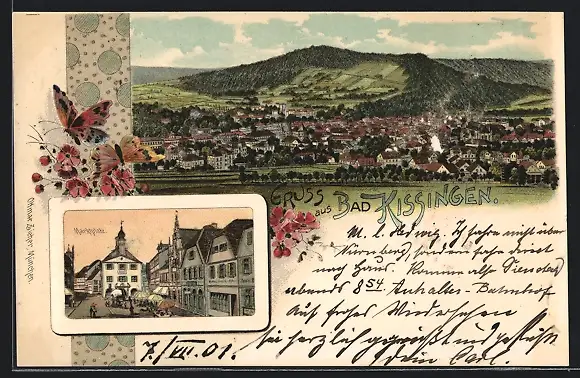 Gruss aus Bad Kissingen.
Marktplatz.
Ottmar Zieher, München.
M. l. Hedwig. Ich fahre nicht über
Nürnberg, sondern fahre direkt
nach Haus. Komme also Dienstag
abends 8 54. Anhalter-Bahnhof
Auf frohes Wiedersehen
sei herzlich gegrüßt und geküßt
Dein Carl.
7./VII. 01.